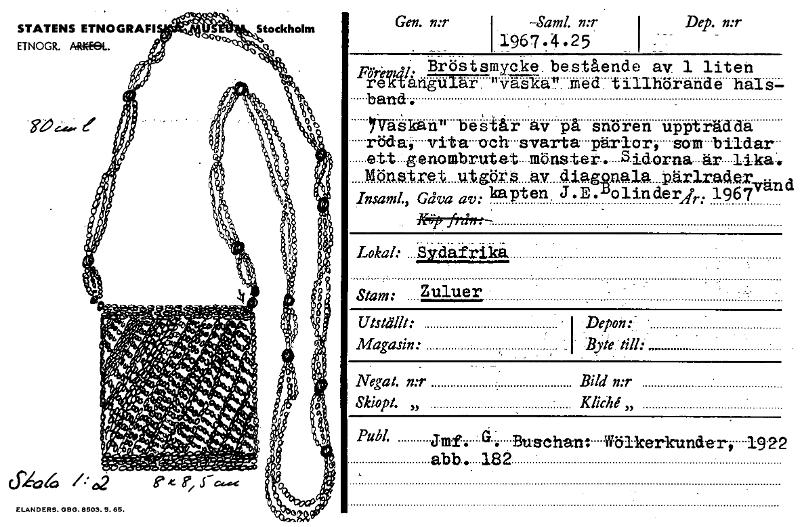 STATENS ETNOGRAFISKA MUSEUM, Stockholm
ETNOGR. ARKEOL.
80 cm l
Skala 1:2
8 x 8,5 cm
ELANDERS. GBG. 8503. 9. 65.
Gen. n:r
Saml. n:r
Dep. n:r
1967.4.25
Föremål: Bröstsmycke bestående av 1 liten
rektangulär "väska" med tillhörande hals-
band.
"Väskan" består av på snören uppträdda
röda, vita och svarta pärlor, som bildar
ett genombrutet mönster. Sidorna är lika.
Mönstret utgörs av diagonala pärlrader
vänd
Insaml., Gåva av: kapten J.E.Bolinder År: 1967
Köp från:
Lokal: Sydafrika
Stam: Zuluer
Utställt:
Depon:
Magasin:
Byte till:
Negat. n:r
Bild n:r
Skiopt. „
Kliché „
Publ. Jmf. G. Buschan: Wölkerkunder, 1922
abb. 182